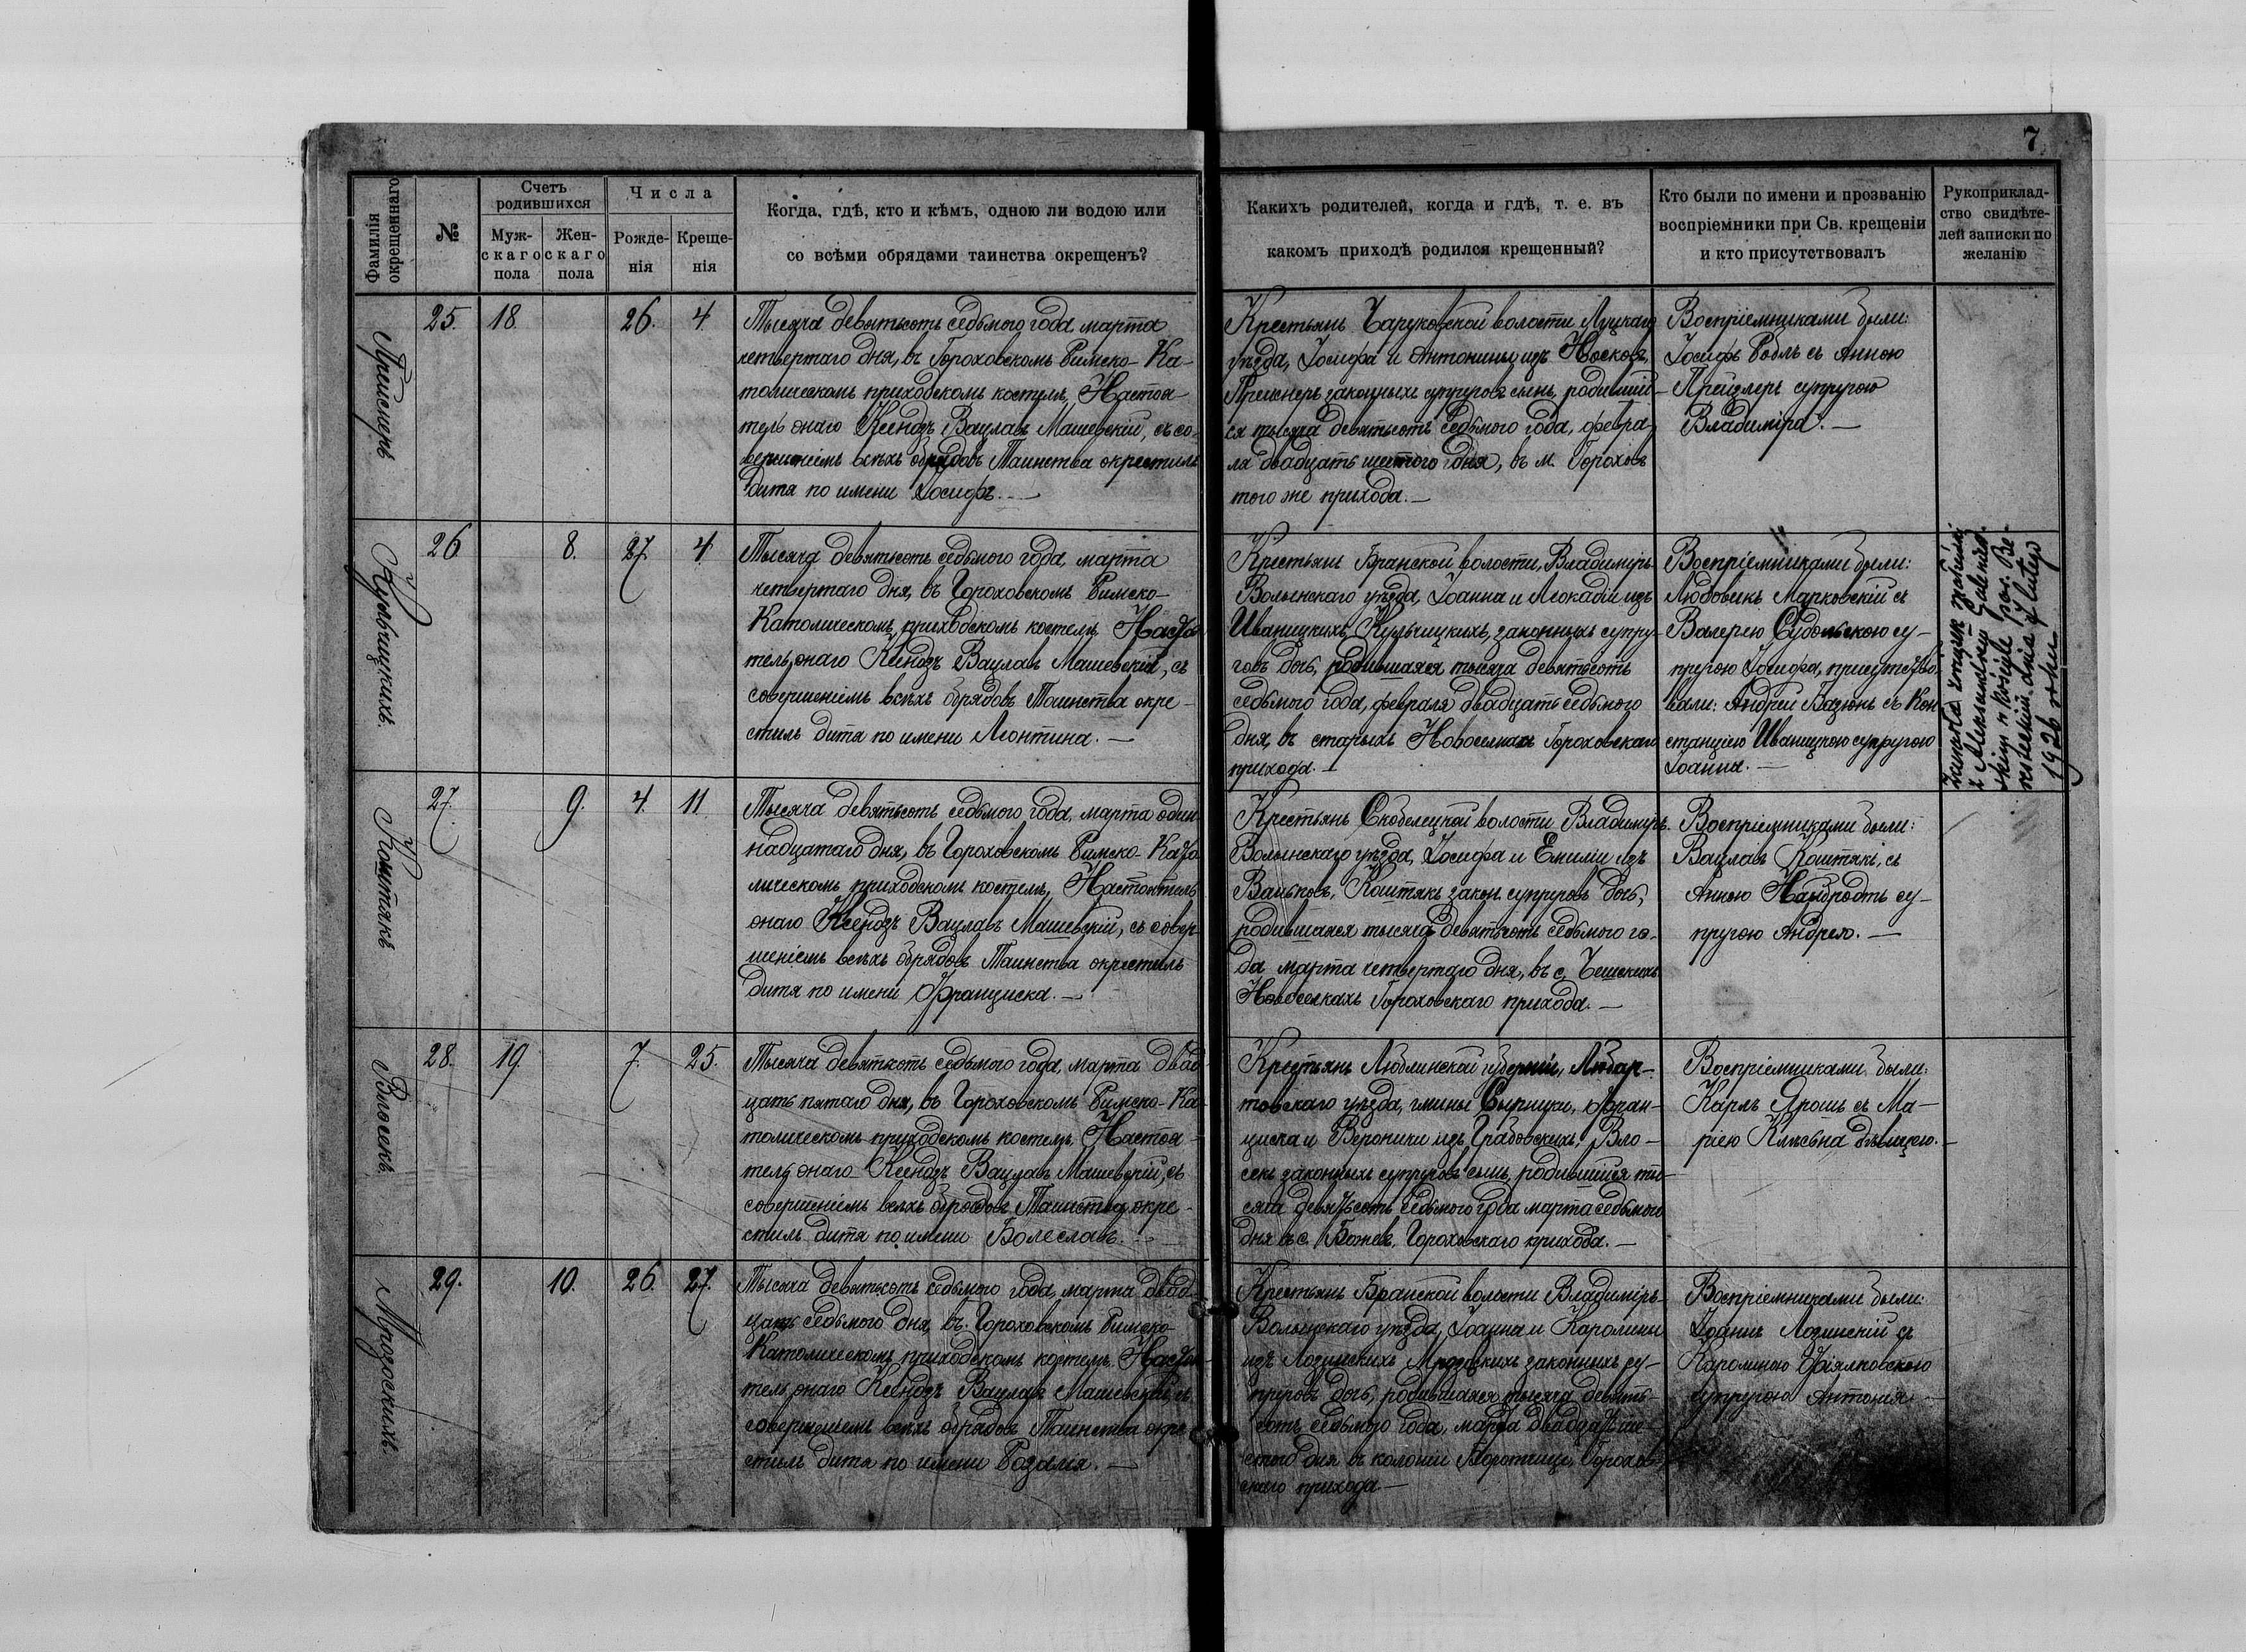 7
Фамилія
окрещеннаго
№
Счетъ
родившихся
Муж-
скаго
пола
Жен-
скаго
пола
Числа
Рожде-
нія
Креще-
нія
Когда, гдѣ, кто и кѣмъ, одною ли водою или
со всѣми обрядами таинства окрещенъ?
Какихъ родителей, когда и гдѣ, т. е. въ
какомъ приходѣ родился крещенный?
Кто были по имени и прозванію
воспріемники при Св. крещеніи
и кто присутствовалъ
Рукоприклад-
ство свидѣте-
лей записки по
желанію
25. 18. 26. 4.
Тысяча девятьсотъ седьмого года, марта
четвертаго дня, въ Гороховскомъ Римско-Ка-
толическомъ приходскомъ костелѣ, Настоя-
тель онаго Ксендзъ Вацлавъ Машевскій, съ со-
вершеніемъ всѣхъ обрядовъ Таинства окрестилъ
дитя по имени Іосифъ. —
Крестьянъ Чаруковской волости Луцкаго
уѣзда, Іосифа и Антонины изъ
законныхъ супруговъ сынъ, родивший-
ся тысяча девятьсотъ седьмого года, февра-
ля двадцать шестого дня, въ м. Гороховѣ
того же прихода. —
Воспріемниками были:
Іосифъ съ Анною
супругою
Владиміра. —
Кульчицкихъ.
26. 8. 27. 4.
Тысяча девятьсотъ седьмого года, марта
четвертаго дня, въ Гороховскомъ Римско-
Католическомъ приходскомъ костелѣ, Настоя-
тель онаго Ксендзъ Вацлавъ Машевскій, съ
совершеніемъ всѣхъ обрядовъ Таинства окре-
стилъ дитя по имени Леонтина. —
Крестьянъ Бранской волости, Владиміръ-
Волынскаго уѣзда, Іоанна и Леокадіи изъ
Иваницкихъ, Кульчицкихъ, законныхъ супру-
говъ дочь, родившаяся тысяча девятьсотъ
седьмого года, февраля двадцать седьмого
дня, въ старыхъ Новоселкахъ Гороховскаго
прихода. —
Воспріемниками были:
Людовикъ Марковскій съ
Валерею су-
пругою Іосифа, присутство-
вали: Андрей съ Кон-
станціею Иваницкою супругою
Іоанна. —
Zawarła związek małżeński
z Aleksandrem
w kościele par. Be-
resteckim dnia 7 lutego
1926 roku
Коштякъ
27. 9. 4. 11
Тысяча девятьсотъ седьмого года, марта один-
надцатаго дня, въ Гороховскомъ Римско-Като-
лическомъ приходскомъ костелѣ, Настоятель
онаго Ксендзъ Вацлавъ Машевскій, съ совер-
шеніемъ всѣхъ обрядовъ Таинства окрестилъ
дитя по имени Франциска. —
Крестьянъ Скобелецкой волости Владиміръ-
Волынскаго уѣзда, Іосифа и Емиліи изъ
Коштякъ закон. супруговъ дочь,
родившаяся тысяча девятьсотъ седьмого го-
да марта четвертаго дня, въ с. Чешскихъ
Новоселкахъ Гороховскаго прихода. —
Воспріемниками были:
Вацлавъ Коштякъ, съ
Анною су-
пругою Андрея. —
Влосекъ
28. 19. 7. 25.
Тысяча девятьсотъ седьмого года, марта двад-
цать пятаго дня, въ Гороховскомъ Римско-Ка-
толическомъ приходскомъ костелѣ, Настоя-
тель онаго Ксендзъ Вацлавъ Машевскій, съ
совершеніемъ всѣхъ обрядовъ Таинства окре-
стилъ дитя по имени Болеславъ. —
Крестьянъ Люблинской губерніи, Любар-
товскаго уѣзда, гмины Сырники, Фран-
циска и Вероники изъ Грабовскихъ, Вло-
секъ законныхъ супруговъ сынъ, родившійся ты-
сяча девятьсотъ седьмого года марта седьмого
дня въ с. Божевѣ, Гороховскаго прихода. —
Воспріемниками были:
Карлъ Ярошъ съ Ма-
ріею дѣвицею. —
29. 10. 26. 27.
Тысяча девятьсотъ седьмого года, марта двад-
цать седьмого дня, въ Гороховскомъ Римско-
Католическомъ приходскомъ костелѣ, Настоя-
тель онаго Ксендзъ Вацлавъ Машевскій, съ
совершеніемъ всѣхъ обрядовъ Таинства окре-
стилъ дитя по имени Розалія. —
Крестьянъ Бранской волости Владиміръ-
Волынскаго уѣзда, Іоанна и Каролины
изъ Лозинскихъ законныхъ су-
пруговъ дочь, родившаяся тысяча девять-
сотъ седьмого года, марта двадцать ше-
стого дня въ колоніи Воротницѣ Горохов-
скаго прихода —
Воспріемниками были:
Іоаннъ Лозинскій съ
Каролиною Фіялковскою
супругою Антонія —